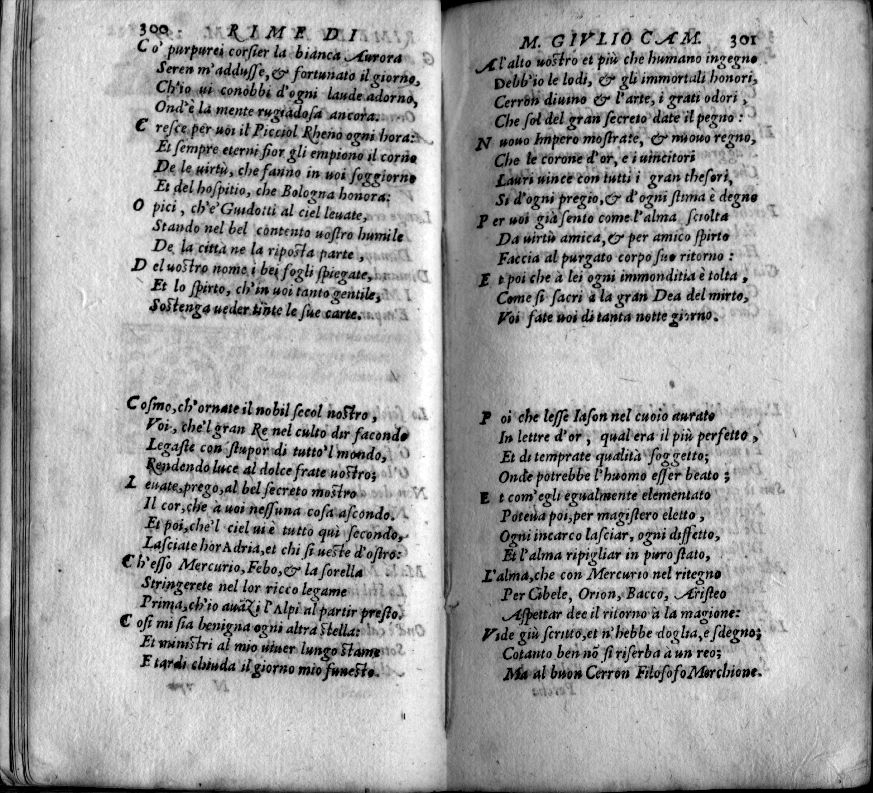 300 RIME DI
Co' purpurei corsier la bianca Aurora
Seren m'addusse, & fortunato il giorno,
Ch'io ui conobbi d'ogni laude adorno,
Ond'è la mente rugiadosa ancora.
Cresce per uoi il Picciol Rheno ogni hora:
Et sempre eterni fior gli empiono il corno
De le uirtù, che fanno in uoi soggiorno
Et del hospitio, che Bologna honora:
Opici, ch'e' Guidotti al ciel leuate,
Stando nel bel contento uostro humile
De la città ne la riposta parte,
Del uostro nome i bei fogli spiegate,
Et lo spirto, ch'in uoi tanto gentile,
Sostenga ueder tinte le sue carte.
Cosmo, ch'ornate il nobil secol nostro,
Voi, che'l gran Re nel culto dir facondo
Legaste con stupor di tutto'l mondo,
Rendendo luce al dolce frate uostro;
Leuate, prego, al bel secreto mostro
Il cor, che a uoi nessuna cosa ascondo.
Et poi, che'l ciel ui è tutto quì secondo,
Lasciate hor Adria, et chi si ueste d'ostro:
Ch'esso Mercurio, Febo, & la sorella
Stringerete nel lor ricco legame
Prima, ch'io auāzi l'Alpi al partir presto.
Cosi mi sia benigna ogni altra stella:
Et ministri al mio uiuer lungo stame
E tardi chiuda il giorno mio funesto.
M. GIVLIO CAM. 301
Al'alto uostro et più che humano ingegno
Debb'io le lodi, & gli immortali honori,
Cerron diuino & l'arte, i grati odori,
Che sol del gran secreto date il pegno:
Nuouo Impero mostrate, & nuouo regno,
Che le corone d'or, e i uincitori
Lauri uince con tutti i gran thesori,
Si d'ogni pregio, & d'ogni stima è degno
Per uoi già sento come l'alma sciolta
Da uirtù amica, & per amico spirto
Faccia al purgato corpo suo ritorno:
Et poi che à lei ogni immonditia è tolta,
Come si sacri à la gran Dea del mirto,
Voi fate uoi di tanta notte giorno.
Poi che lesse Iason nel cuoio aurato
In lettre d'or, qual era il più perfetto,
Et di temprate qualità soggetto;
Onde potrebbe l'huomo esser beato;
Et com'egli egualmente elementato
Poteua poi, per magistero eletto,
Ogni incarco lasciar, ogni diffetto,
Et l'alma ripigliar in puro stato,
L'alma, che con Mercurio nel ritegno
Per Cibele, Orion, Bacco, Aristeo
Aspettar dee il ritorno à la magione:
Vide giù scritto, et n'hebbe doglia, e sdegno;
Cotanto ben nō si riserba à un reo;
Ma al buon Cerron Filosofo Marchione.